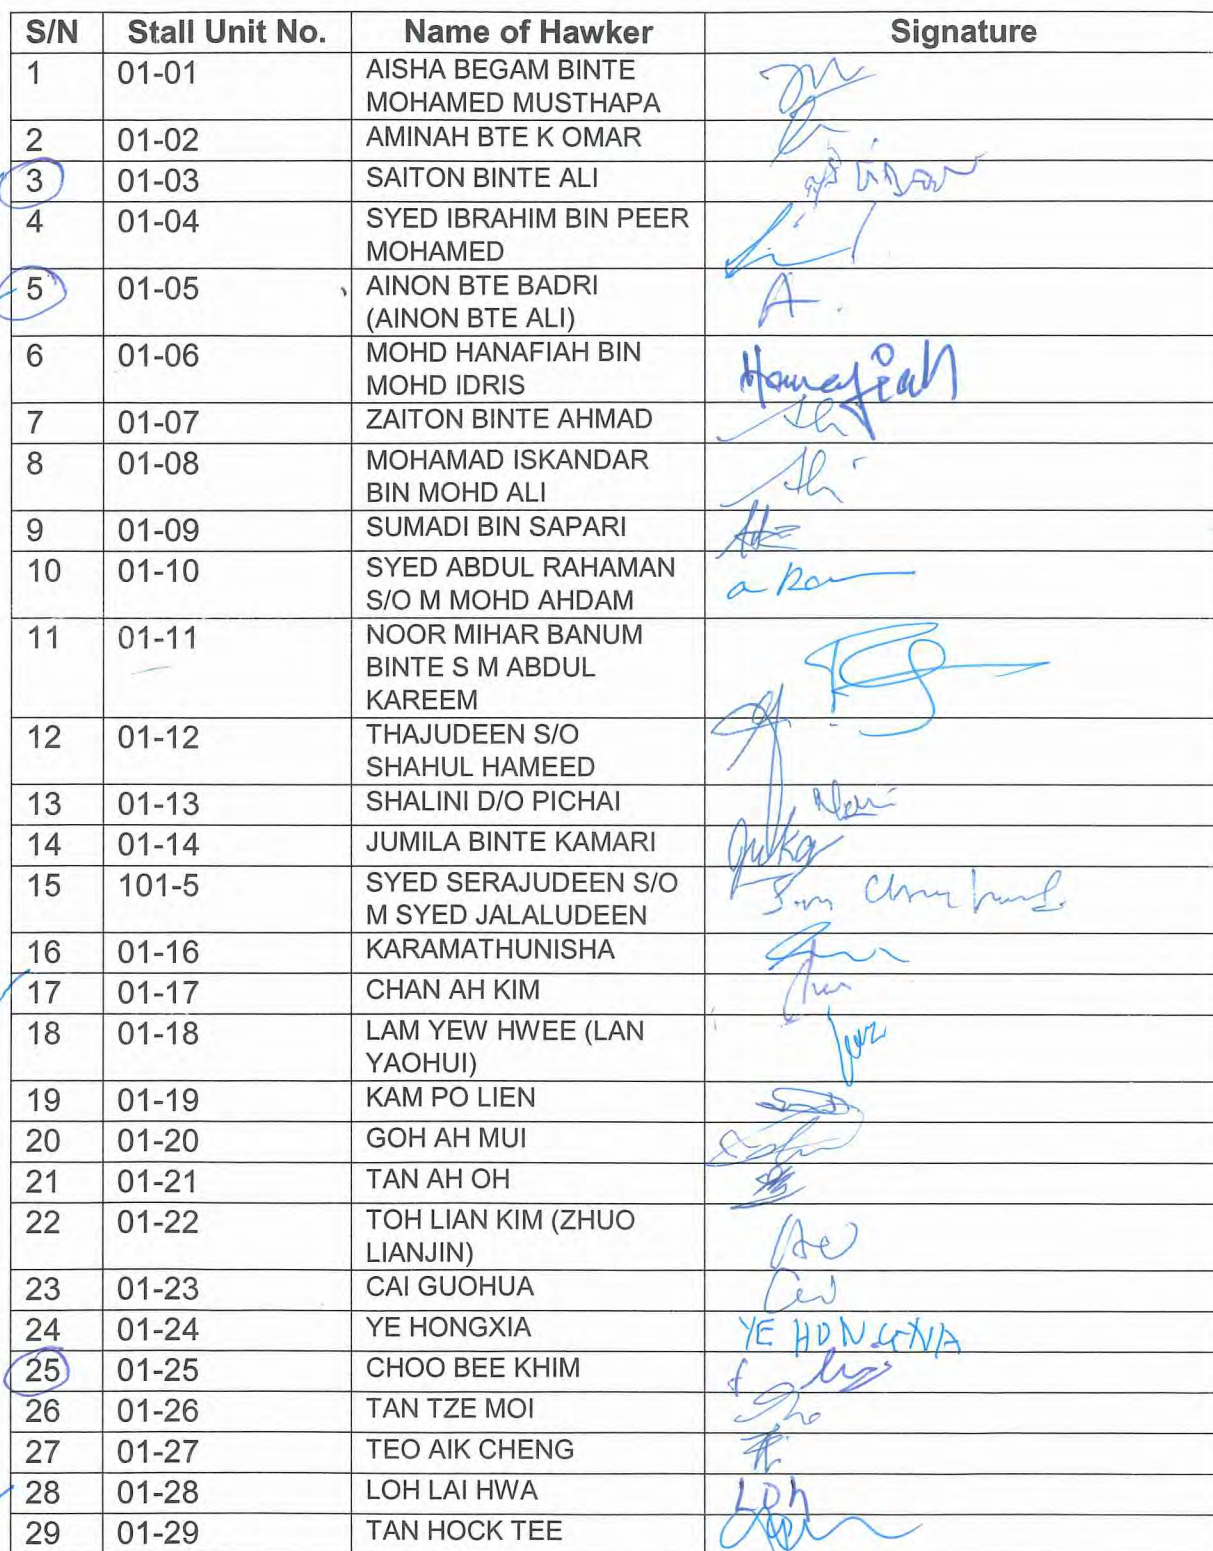 S/N Stall Unit No. Name of Hawker Signature
1 01-01 AISHA BEGAM BINTE
MOHAMED MUSTHAPA
2 01-02 AMINAH BTE K OMAR
3 01-03 SAITON BINTE ALI
4 01-04 SYED IBRAHIM BIN PEER
MOHAMED
5 01-05 AINON BTE BADRI
(AINON BTE ALI)
A.
6 01-06 MOHD HANAFIAH BIN
MOHD IDRIS
Hanafiah
7 01-07 ZAITON BINTE AHMAD
8 01-08 MOHAMAD ISKANDAR
BIN MOHD ALI
9 01-09 SUMADI BIN SAPARI
10 01-10 SYED ABDUL RAHAMAN
S/O M MOHD AHDAM
11 01-11 NOOR MIHAR BANUM
BINTE S M ABDUL
KAREEM
12 01-12 THAJUDEEN S/O
SHAHUL HAMEED
13 01-13 SHALINI D/O PICHAI
14 01-14 JUMILA BINTE KAMARI
15 101-5 SYED SERAJUDEEN S/O
M SYED JALALUDEEN
16 01-16 KARAMATHUNISHA
17 01-17 CHAN AH KIM
18 01-18 LAM YEW HWEE (LAN
YAOHUI)
19 01-19 KAM PO LIEN
20 01-20 GOH AH MUI
21 01-21 TAN AH OH
22 01-22 TOH LIAN KIM (ZHUO
LIANJIN)
23 01-23 CAI GUOHUA
24 01-24 YE HONGXIA YE HONGXIA
25 01-25 CHOO BEE KHIM
26 01-26 TAN TZE MOI
27 01-27 TEO AIK CHENG
28 01-28 LOH LAI HWA LOh
29 01-29 TAN HOCK TEE